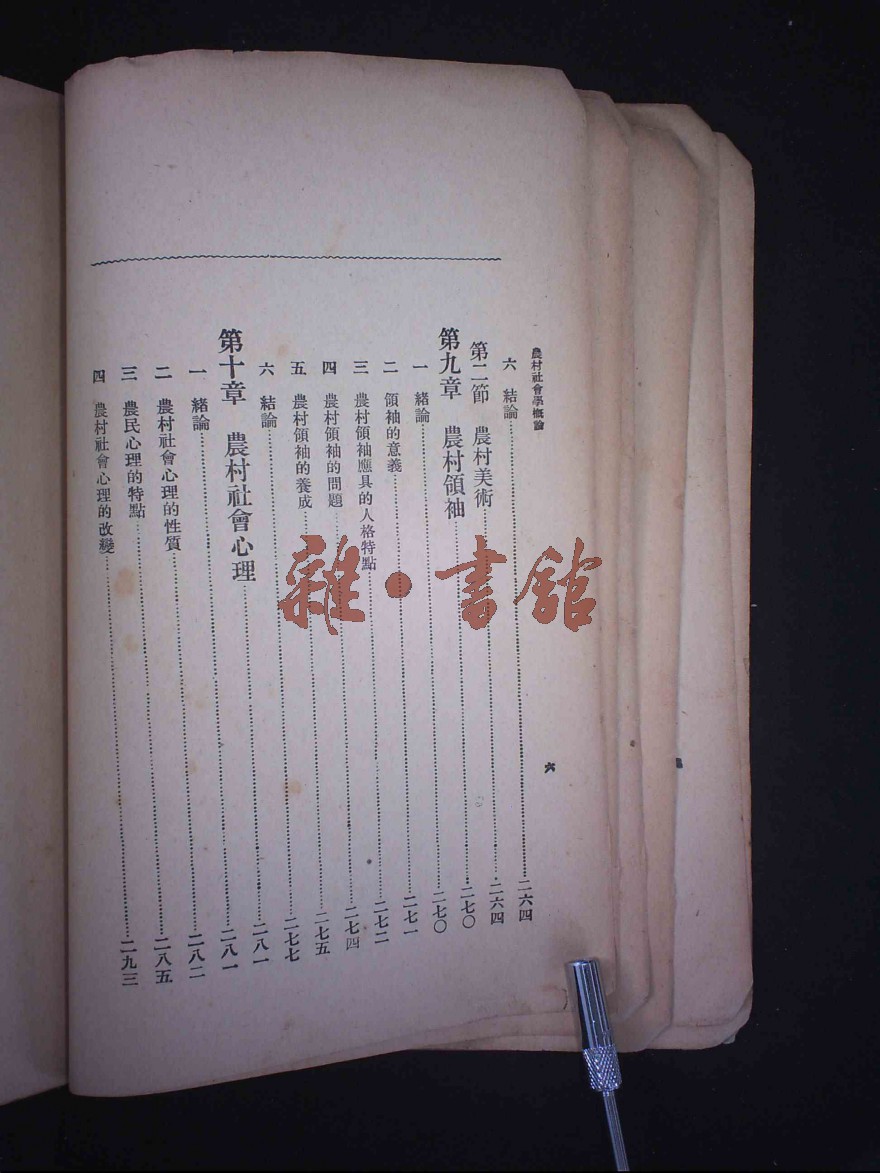 農村社會學概論
六
六 結論……二六四
第二節 農村美術……二六四
第九章 農村領袖……二七〇
一 緒論……二七〇
二 領袖的意義……二七一
三 農村領袖應具的人格特點……二七二
四 農村領袖的問題……二七四
五 農村領袖的養成……二七五
六 結論……二七七
第十章 農村社會心理……二八一
一 緒論……二八一
二 農村社會心理的性質……二八二
三 農民心理的特點……二八五
四 農村社會心理的改變……二九三
雜·書館